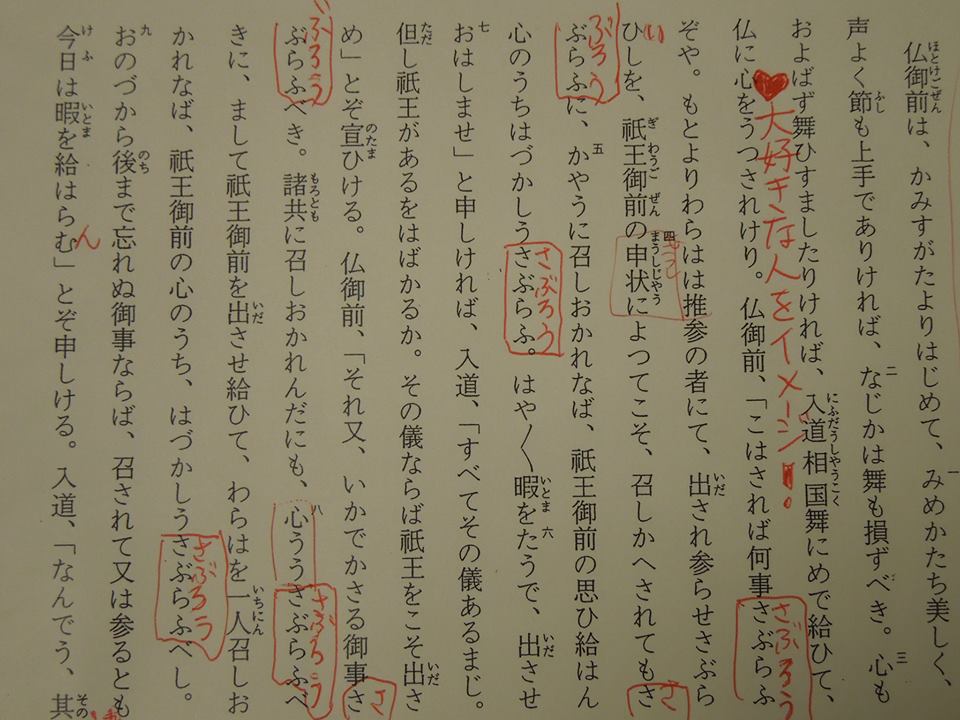 ほとけごぜん
仏御前は、かみすがたよりはじめて、みめかたち美しく、
一
ふし
声よく節も上手でありければ、なじかは舞も損ずべき。心も
二 三
にふだうしやうこく
およばず舞ひすましたりければ、入道相国舞にめで給ひて、
♥大好きな人をイメージ!。
仏に心をうつされけり。仏御前、「こはされば何事さぶらふ
さぶろう
いだ
ぞや。もとよりわらはは推参の者にて、出され参らせさぶら
い
ぎわうごぜん 四 まうしじやう
ひしを、祇王御前の申状によつてこそ、召しかへされてもさ
さ
ぶろう
五
ぶらふに、かやうに召しおかれなば、祇王御前の思ひ給はん
さぶろう
いとま 六 いだ
心のうちはづかしうさぶらふ。はや〳〵暇をたうで、出させ
七
おはしませ」と申しければ、入道、「すべてその儀あるまじ。
ただ いだ
但し祇王があるをはばかるか。その儀ならば祇王をこそ出さ
のたま
め」とぞ宣ひける。仏御前、「それ又、いかでかさる御事さ
さ
ぶろう
もろとも 八
ぶらふべき。諸共に召しおかれんだにも、心ううさぶらふべ
さぶろう
いだ いちにん
きに、まして祇王御前を出させ給ひて、わらはを一人召しお
かれなば、祇王御前の心のうち、はづかしうさぶらふべし。
さぶろう
九 のち
おのづから後まで忘れぬ御事ならば、召されて又は参るとも
けふ いとま その
今日は暇を給はらむ」とぞ申しける。入道、「なんでう、其
ん